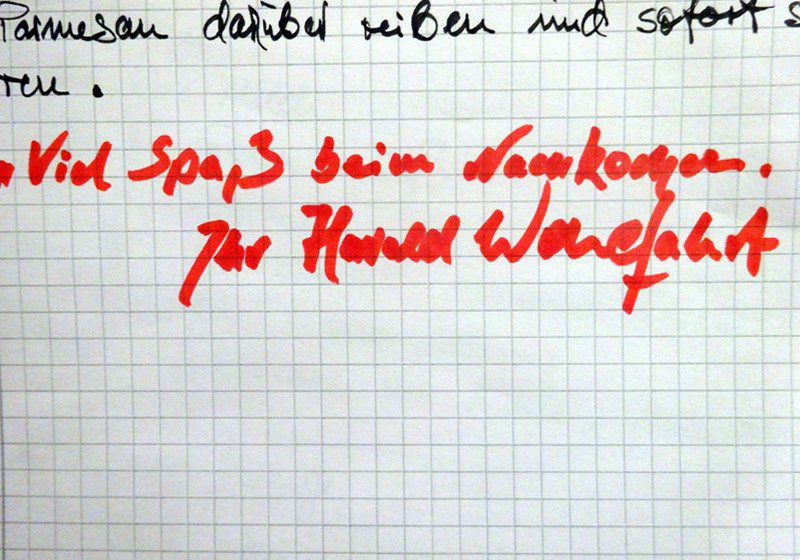 Parmesan darüber reiben und sofort s
ren.
Viel Spaß beim Nachkochen.
Ihr Harald Wohlfahrt